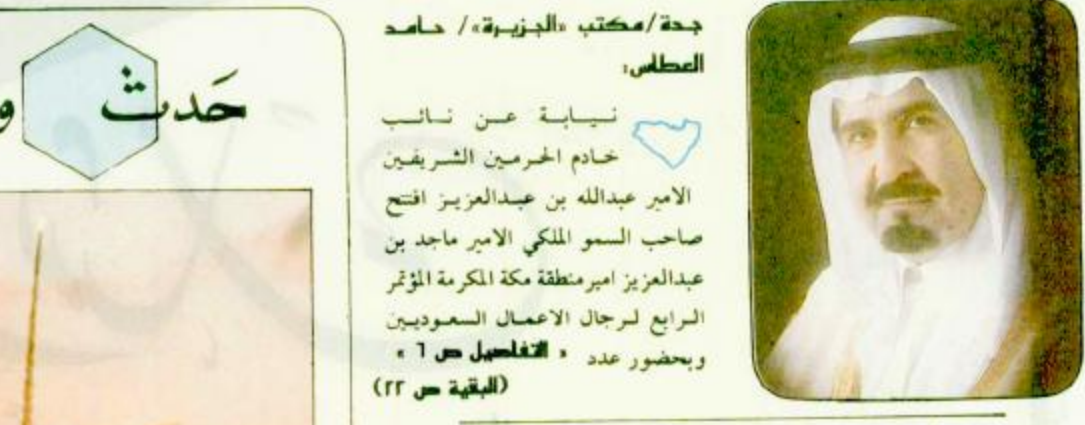 جدة/مكتب «الجزيرة»/ حامد
العطاس:
نيابة عن نائب
خادم الحرمين الشريفين
الامير عبدالله بن عبدالعزيز افتتح
صاحب السمو الملكي الامير ماجد بن
عبدالعزيز امير منطقة مكة المكرمة المؤتمر
الرابع لرجال الاعمال السعوديين
وبحضور عدد « التفاصيل ص ٦ »
(البقية ص ٢٢)
حَدث و